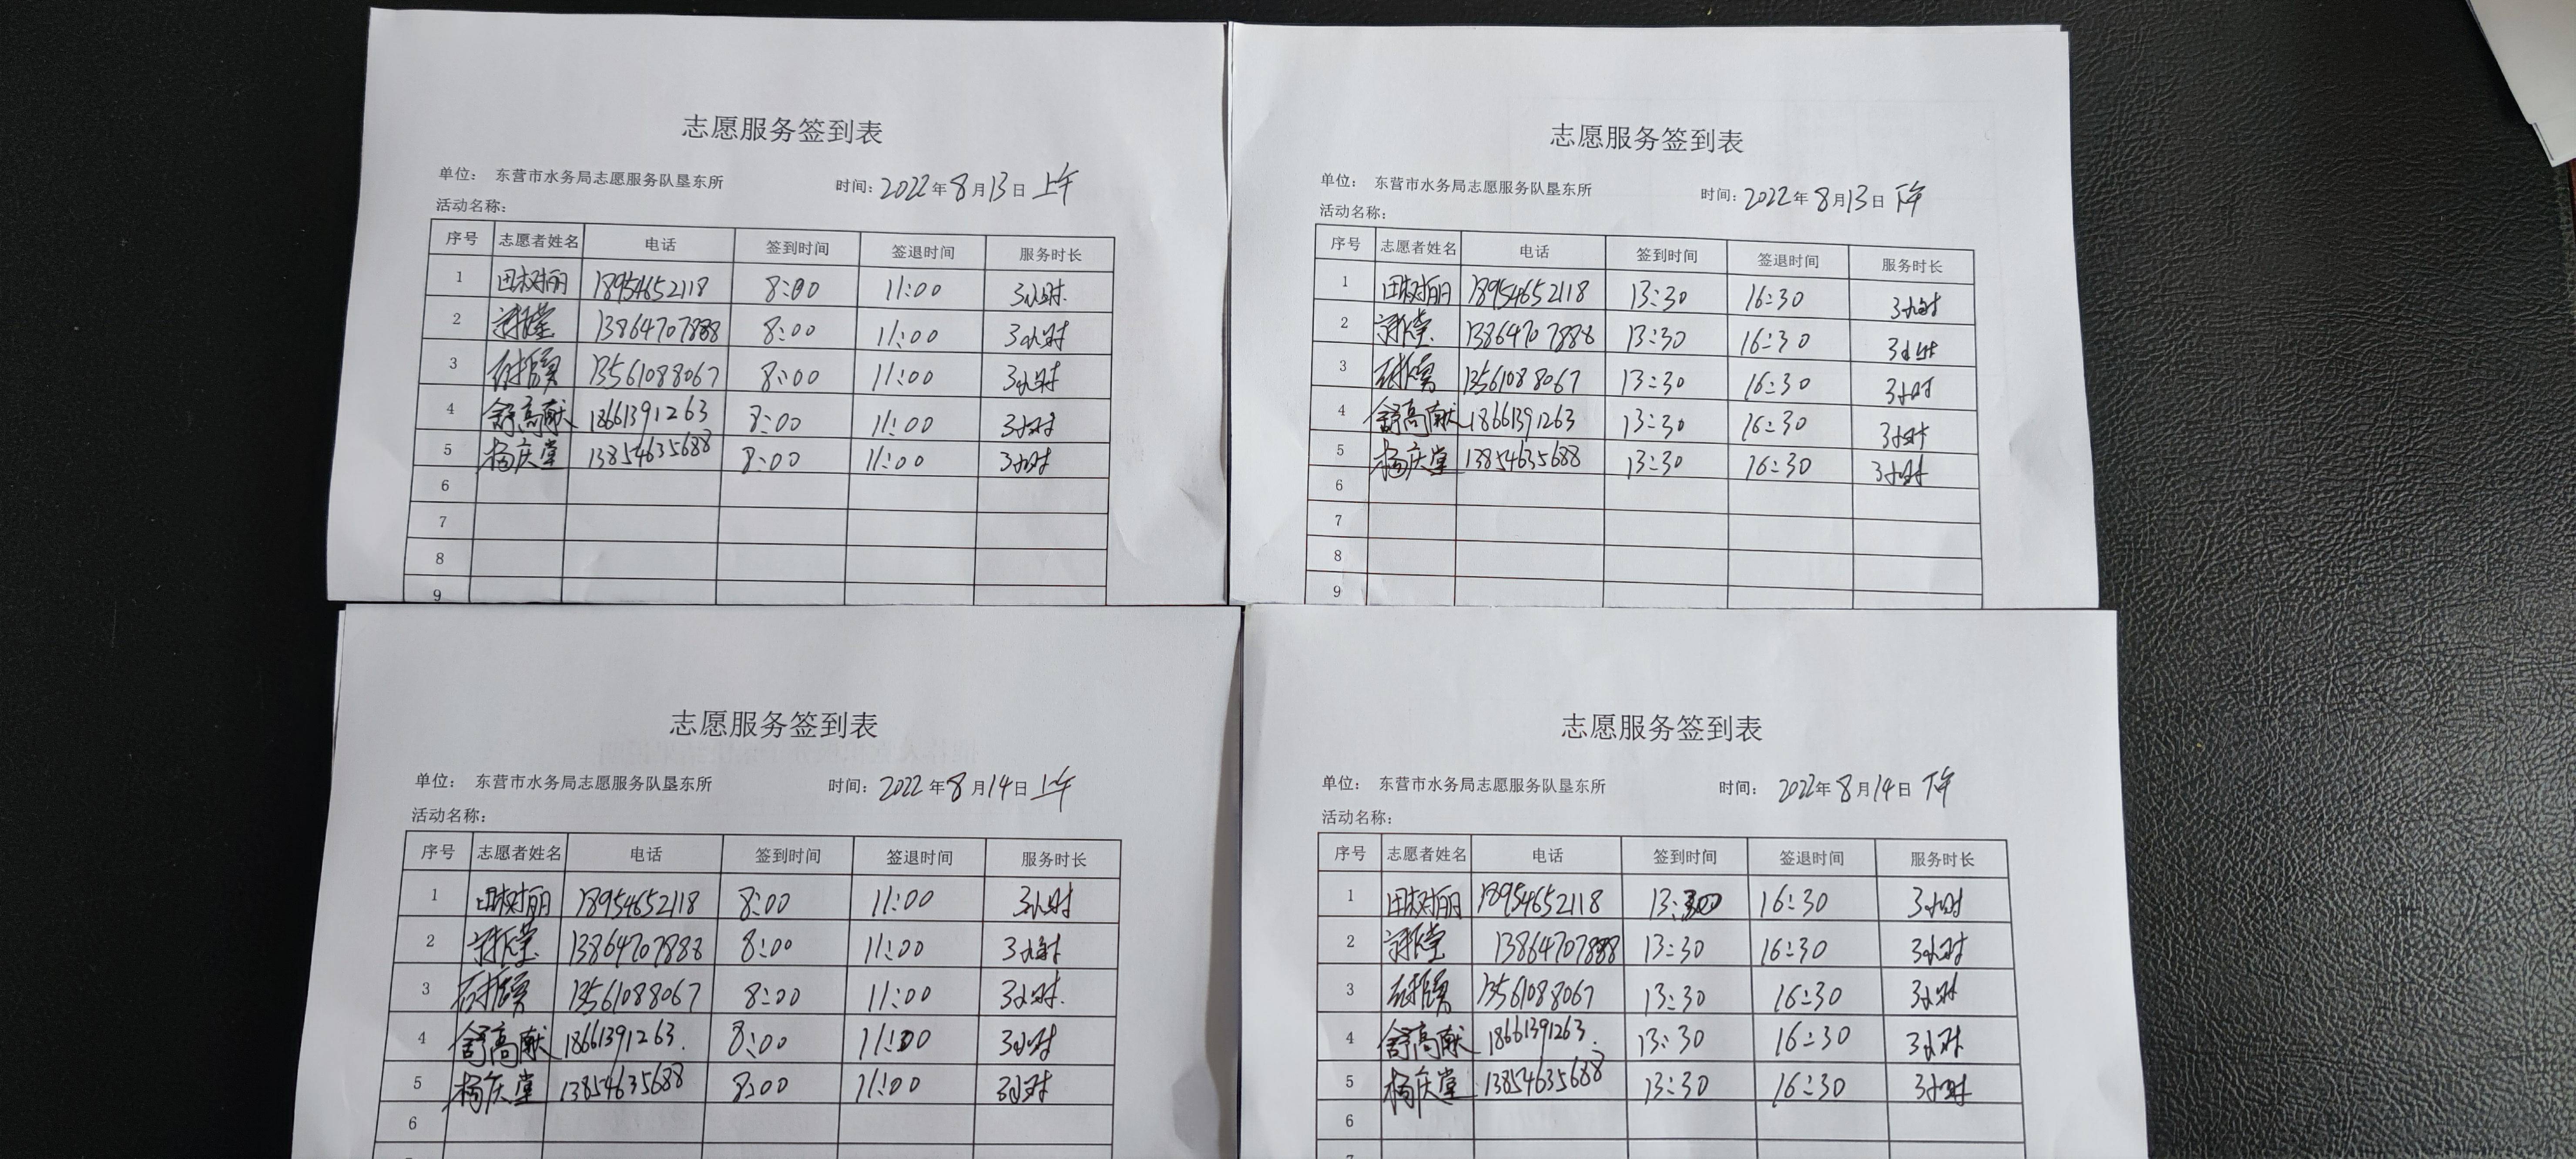 志愿服务签到表
单位： 东营市水务局志愿服务队垦东所 时间：2022年8月13日 上午
活动名称：
序号 志愿者姓名 电话 签到时间 签退时间 服务时长
1 田树丽 18954652118 8:00 11:00 3小时.
2 13864707888 8:00 11:00 3小时
3 13561088067 8:00 11:00 3小时
4 舒高献 18661391263 8:00 11:00 3小时
5 杨庆堂 13854635688 8:00 11:00 3小时
6
7
8
9
志愿服务签到表
单位： 东营市水务局志愿服务队垦东所 时间：2022年8月13日 下午
活动名称：
序号 志愿者姓名 电话 签到时间 签退时间 服务时长
1 田树丽 18954652118 13:30 16:30 3小时
2 13864707888 13:30 16:30 3小时
3 13561088067 13:30 16:30 3小时
4 舒高献 18661391263 13:30 16:30 3小时
5 杨庆堂 13854635688 13:30 16:30 3小时
6
7
8
9
志愿服务签到表
单位： 东营市水务局志愿服务队垦东所 时间：2022年8月14日 上午
活动名称：
序号 志愿者姓名 电话 签到时间 签退时间 服务时长
1 田树丽 18954652118 8:00 11:00 3小时
2 13864707888 8:00 11:00 3小时
3 13561088067 8:00 11:00 3小时.
4 舒高献 18661391263. 8:00 11:00 3小时
5 杨庆堂 13854635688 8:00 11:00 3小时
6
志愿服务签到表
单位： 东营市水务局志愿服务队垦东所 时间： 2022年8月14日 下午
活动名称：
序号 志愿者姓名 电话 签到时间 签退时间 服务时长
1 田树丽 18954652118 13:30 16:30 3小时
2 13864707888 13:30 16:30 3小时
3 13561088067 13:30 16:30 3小时
4 舒高献 18661391263. 13:30 16:30 3小时
5 杨庆堂 13854635688 13:30 16:30 3小时
6